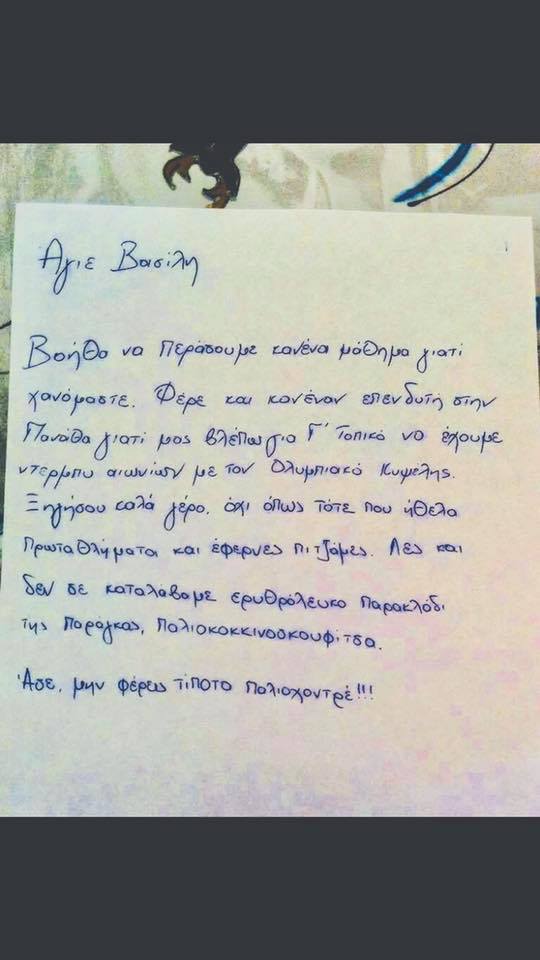 Άγιε Βασίλη
Βοήθα να περάσουμε κανένα μάθημα γιατί
χανόμαστε. Φέρε και κανέναν επενδυτή στην
Πανάθα γιατί μας βλέπω για Γ' Τοπικό να έχουμε
ντέρμπυ αιωνίων με τον Ολυμπιακό Κυψέλης.
Ξηγήσου καλά γέρο. όχι όπως τότε που ήθελα
Πρωταθλήματα και έφερνες πιτζάμες. Λες και
δεν σε καταλάβαμε ερυθρόλευκο παρακλάδι
της παράγκας, παλιοκοκκινοσκουφίτσα.
Άσε, μην φέρεις τίποτα παλιοχοντρέ!!!